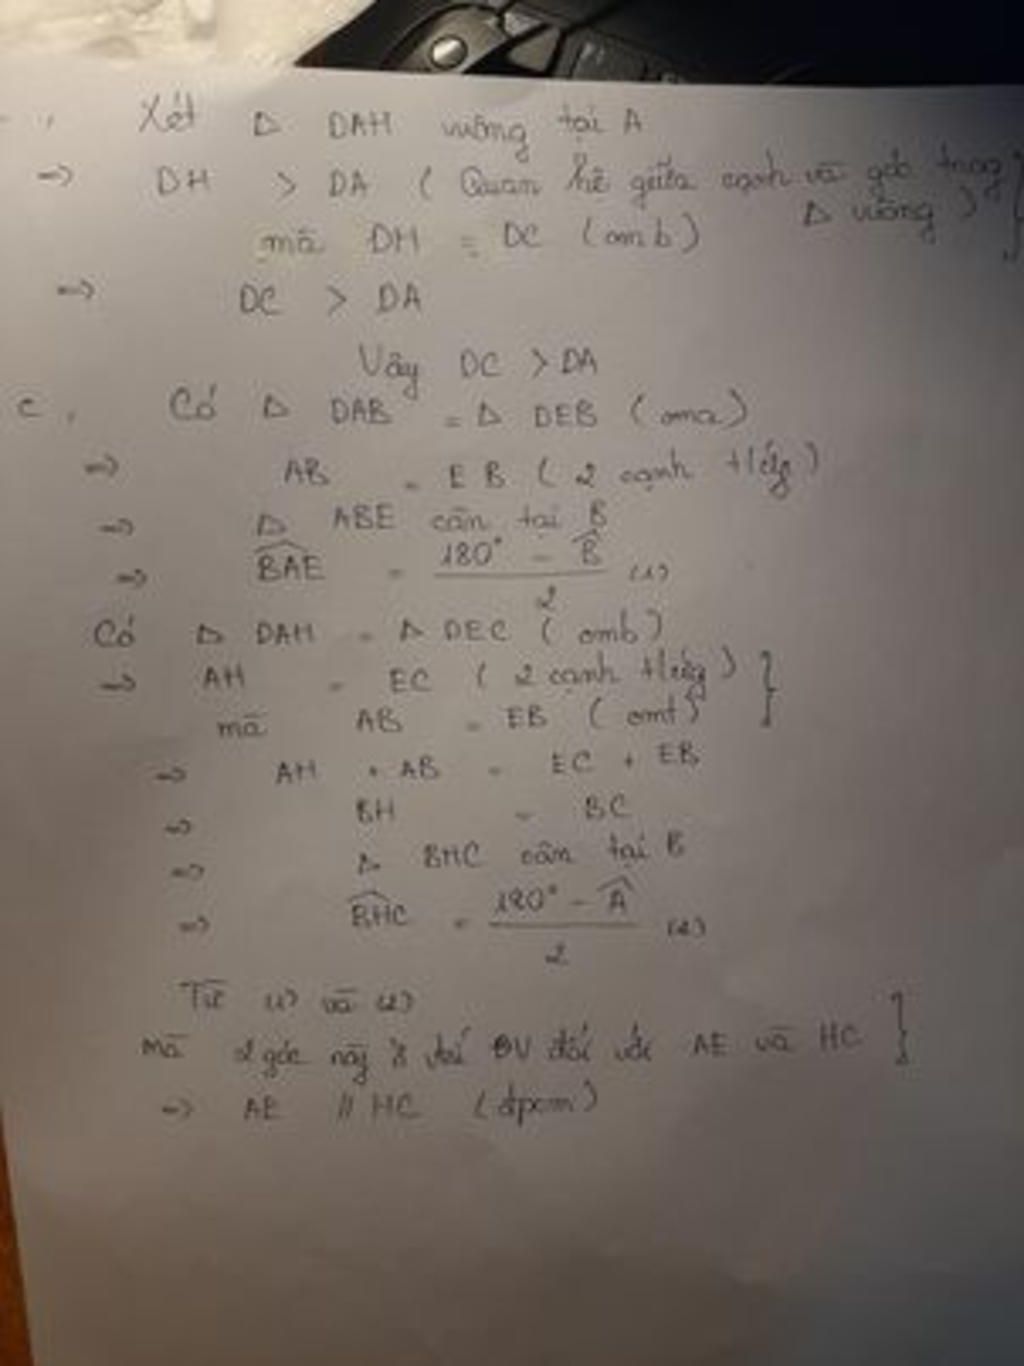 Xét Δ DAH vuông tại A
=> DH > DA ( Quan hệ giữa cạnh và góc trong
Δ vuông ) }
mà DH = DC (cmb)
=> DC > DA
Vậy DC > DA
c, Có Δ DAB = Δ DEB (cma)
=> AB = EB ( 2 cạnh t/ứng )
=> Δ ABE cân tại B
=> \widehat{BAE} = \frac{180° - \widehat{B}}{2} (1)
Có Δ DAH = Δ DEC ( cmb)
=> AH = EC ( 2 cạnh t/ứng ) }
mà AB = EB ( cmt)
=> AH + AB = EC + EB
=> BH = BC
=> Δ BHC cân tại B
=> \widehat{BHC} = \frac{180° - \widehat{A}}{2} (2)
Từ (1) và (2) }
mà 2 góc này ở vtrí ĐV đối với AE và HC
=> AE // HC (đpcm)